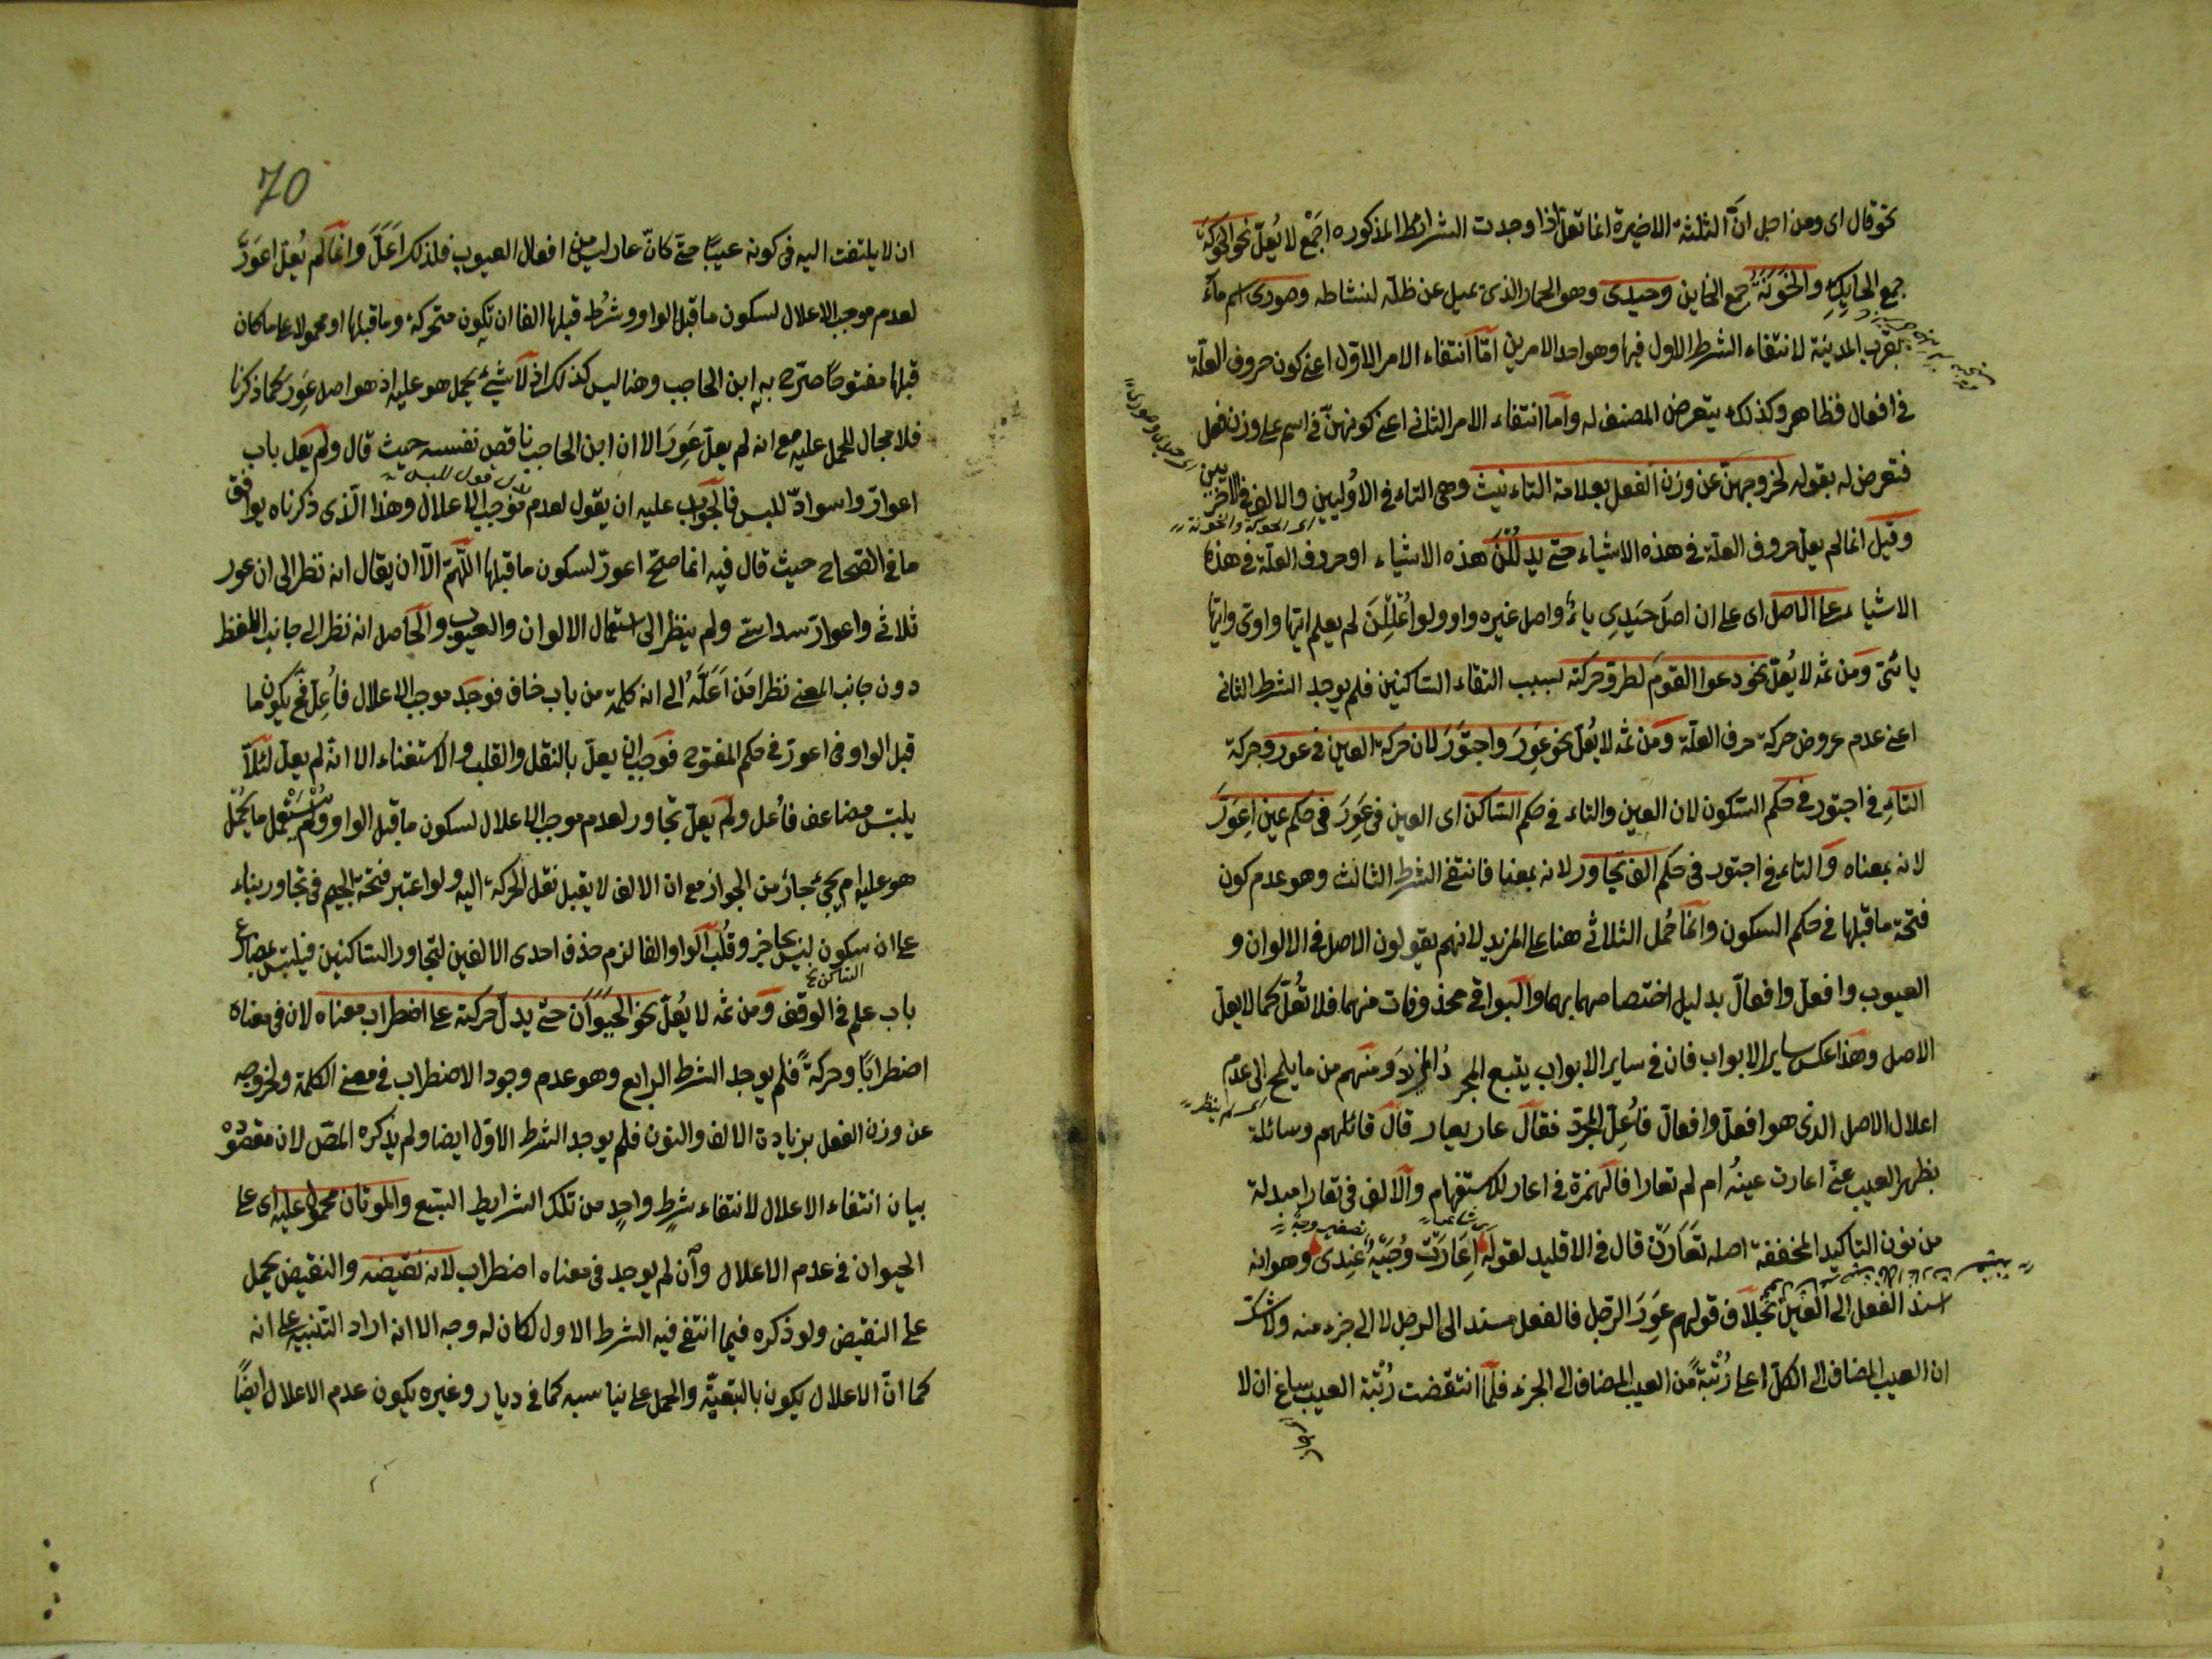 نحو قال اى ومن اجل انّ الثلثة الاخيرة انما تعلّ اذا وجدت الشرائط المذكورة اجمع لا يُعلّ نحو الحَوَكة
جمع الحايك والخَوَنَة جمع الخاين وحيدى وهو الحمار الذى يميل عن ظلّه لنشاطه وصورى اسم ماء
بقرب المدينة لانتفاء الشرط الاول فيها وهو احد الامرين امّا انتفاء الامر الاول اعنى كون حروف العلّة
فى افعال فظاهر وكذلك يتعرض المصنف له واما انتفاء الامر الثانى اعنى كونهنّ فى اسم على وزن فعل
فتعرض له بقوله لخروجهنّ عن وزن الفعل بعلامة التاءنيث وهى التاء فى الاوليين والالف فى الاخريين
اى الحوكة والخونة
وقيل انما لم يعل حروف العلّة فى هذه الاشياء حتى يدللن هذه الاشياء او حروف العلّة فى هذه
الاشياء على الاصل اى على ان اصل حيدى ياء واصل غيره واو ولو اعللن لم يعلم ايّها واوى وايّها
يائى ومن ثمه لا يُعلّ نحو دعوا القوم لطرو حركته بسبب التقاء الساكنين فلم يوجد الشرط الثانى
اعنى عدم عروض حركة حرف العلّة ومن ثمه لا يُعلّ نحو عَوِرَ واجتوَر لان حركة العين فى عور وحركة
التاء فى اجتور فى حكم السّكون لان العين والتاء فى حكم السّاكن اى العين فى عَوِرَ فى حكم عين اعوَرّ
لانه بمعناه والتاء فى اجتور فى حكم الف تجاور لانه بمعناه فانتفى الشرط الثالث وهو عدم كون
فتحة ما قبلها فى حكم السكون وانما حُمل الثلاثى هنا على المزيد لانهم يقولون الاصل فى الالوان و
العيوب وافعلّ وافعالّ بدليل اختصاصهما بهما والبواقى محذوفات منهما فلا تُعلّ كما لا يعلّ
الاصل وهذا عكس ساير الابواب فان فى ساير الابواب يتبع المجرد المزيد ومنهم من ما يلمح الى عدم
اى لم ينظر
اعلال الاصل الذى هو افعلّ وافعالّ فاُعلّ المجرّد فقال عار يعار قال قائلهم وسائلة
بظهر الغيب عنّى اعارت عينُه ام لم تعارا فالهمزة فى اعار للاستفهام والالف فى تعارا مبدلة
من نون التاكيد المخففة اصله تعارنّ قال فى الاقليد لقوله اعارت وُجَيّهٌ عندى وهو انه
اسند الفعل الى العين بخلاف قولهم عَوِرَ الرّجل فالفعل مسند الى الرجل لا الى جزء منه ولا شك
ان العيب المضاف الى الكلّ اعلى رُتْبةً من العيب المضاف الى الجزء فلمّا انتقضت رُتْبة العيب ساغ ان لا
70
ان لا يلتفت اليه فى كونه عيبًا حتى كانّ عار ليس من افعال العيوب فلذلك اُعَلّ وانما لم يُعلّ اعوَرّ
لعدم موجب الاعلال لسكون ما قبل الواو وشرُط قبلها الفا ان يكون متحركة وما قبلها او محمولا على ما كان
قبلها مفتوحًا صرّح به ابن الحاجب وهنا ليس كذلك اذ لا شئ يحمل هو عليه اذ هو اصل عَوِرَ كما ذكرنا
فلا مجال للحمل عليه مع انه لم يعلّ عَوِرَ الا ان ابن الحاجب ناقض نفسه حيث قال ولم يعل باب
اعوارّ واسوادّ للبس فالجواب عليه ان يقول لعدم موجب الاعلال وهذا الّذى ذكرناه يوافق
ما فى الصّحاح حيث قال فيه انما صحّ اعورّ لسكون ما قبلها اللّهمّ الاّ ان يقال انه نظر الى ان عور
ثلاثى واعوارّ سداسى ولم ينظر الى استعمال الالوان والعيوب والحاصل انه نظر الى جانب اللفظ
دون جانب المعنى نظر من اَعَلّه الى انه كلمة من باب خاف فوجد موجب الاعلال فاُعِلّ فح يكون ما
قبل الواو فى اعورّ فى حكم المفتوح فوجب ان يعلّ بالنقل والقلب والاستغناء الا انه لم يعلّ لئلّا
يلبس مضاعف فاعل ولم يعلّ تجاور لعدم موجب الاعلال لسكون ما قبل الواو ولم يستعمل ما يحمل
هو عليه ام يجئ جار من الجوار مع ان الالف لا يقبل نقل الحركة اليه ولو اعتبر فتحة الجيم فى تجاور بناء
على ان سكون ليس بحاجز وقُلب الواو الفا لزم حذف احدى الالفين لتجاور الساكنين فيلتبس بمضارع
الساكن
باب علم فى الوقف ومن ثمه لا يُعلّ نحو الحيوان حتى يدلّ حركته على اضطراب معناه لان فى معناه
اضطرابًا وحركةً فلم يوجد الشرط الرابع وهو عدم وجود الاضطراب فى معنى الكلمة ولخروجه
عن وزن الفعل بزيادة الالف والنون فلم يوجد الشرط الاوّل ايضا ولم يذكره المصّ لان مقصوده
بيان انتفاء الاعلال لانتفاء شرطٍ واحدٍ من تلك الشرايط السبع والموتان محمول عليه اى على
الحيوان فى عدم الاعلال وان لم يوجد فى معناه اضطراب لانه نقيضه والنقيض يحمل
على النقيض ولو ذكره فيما انتفى فيه الشرط الاول لكان له وجه الا انه اراد التنبيه على انه
كما انّ الاعلال يكون بالتبعيّة والحمل على ما يناسبه كما فى ديار وغيره يكون عدم الاعلال ايضًا